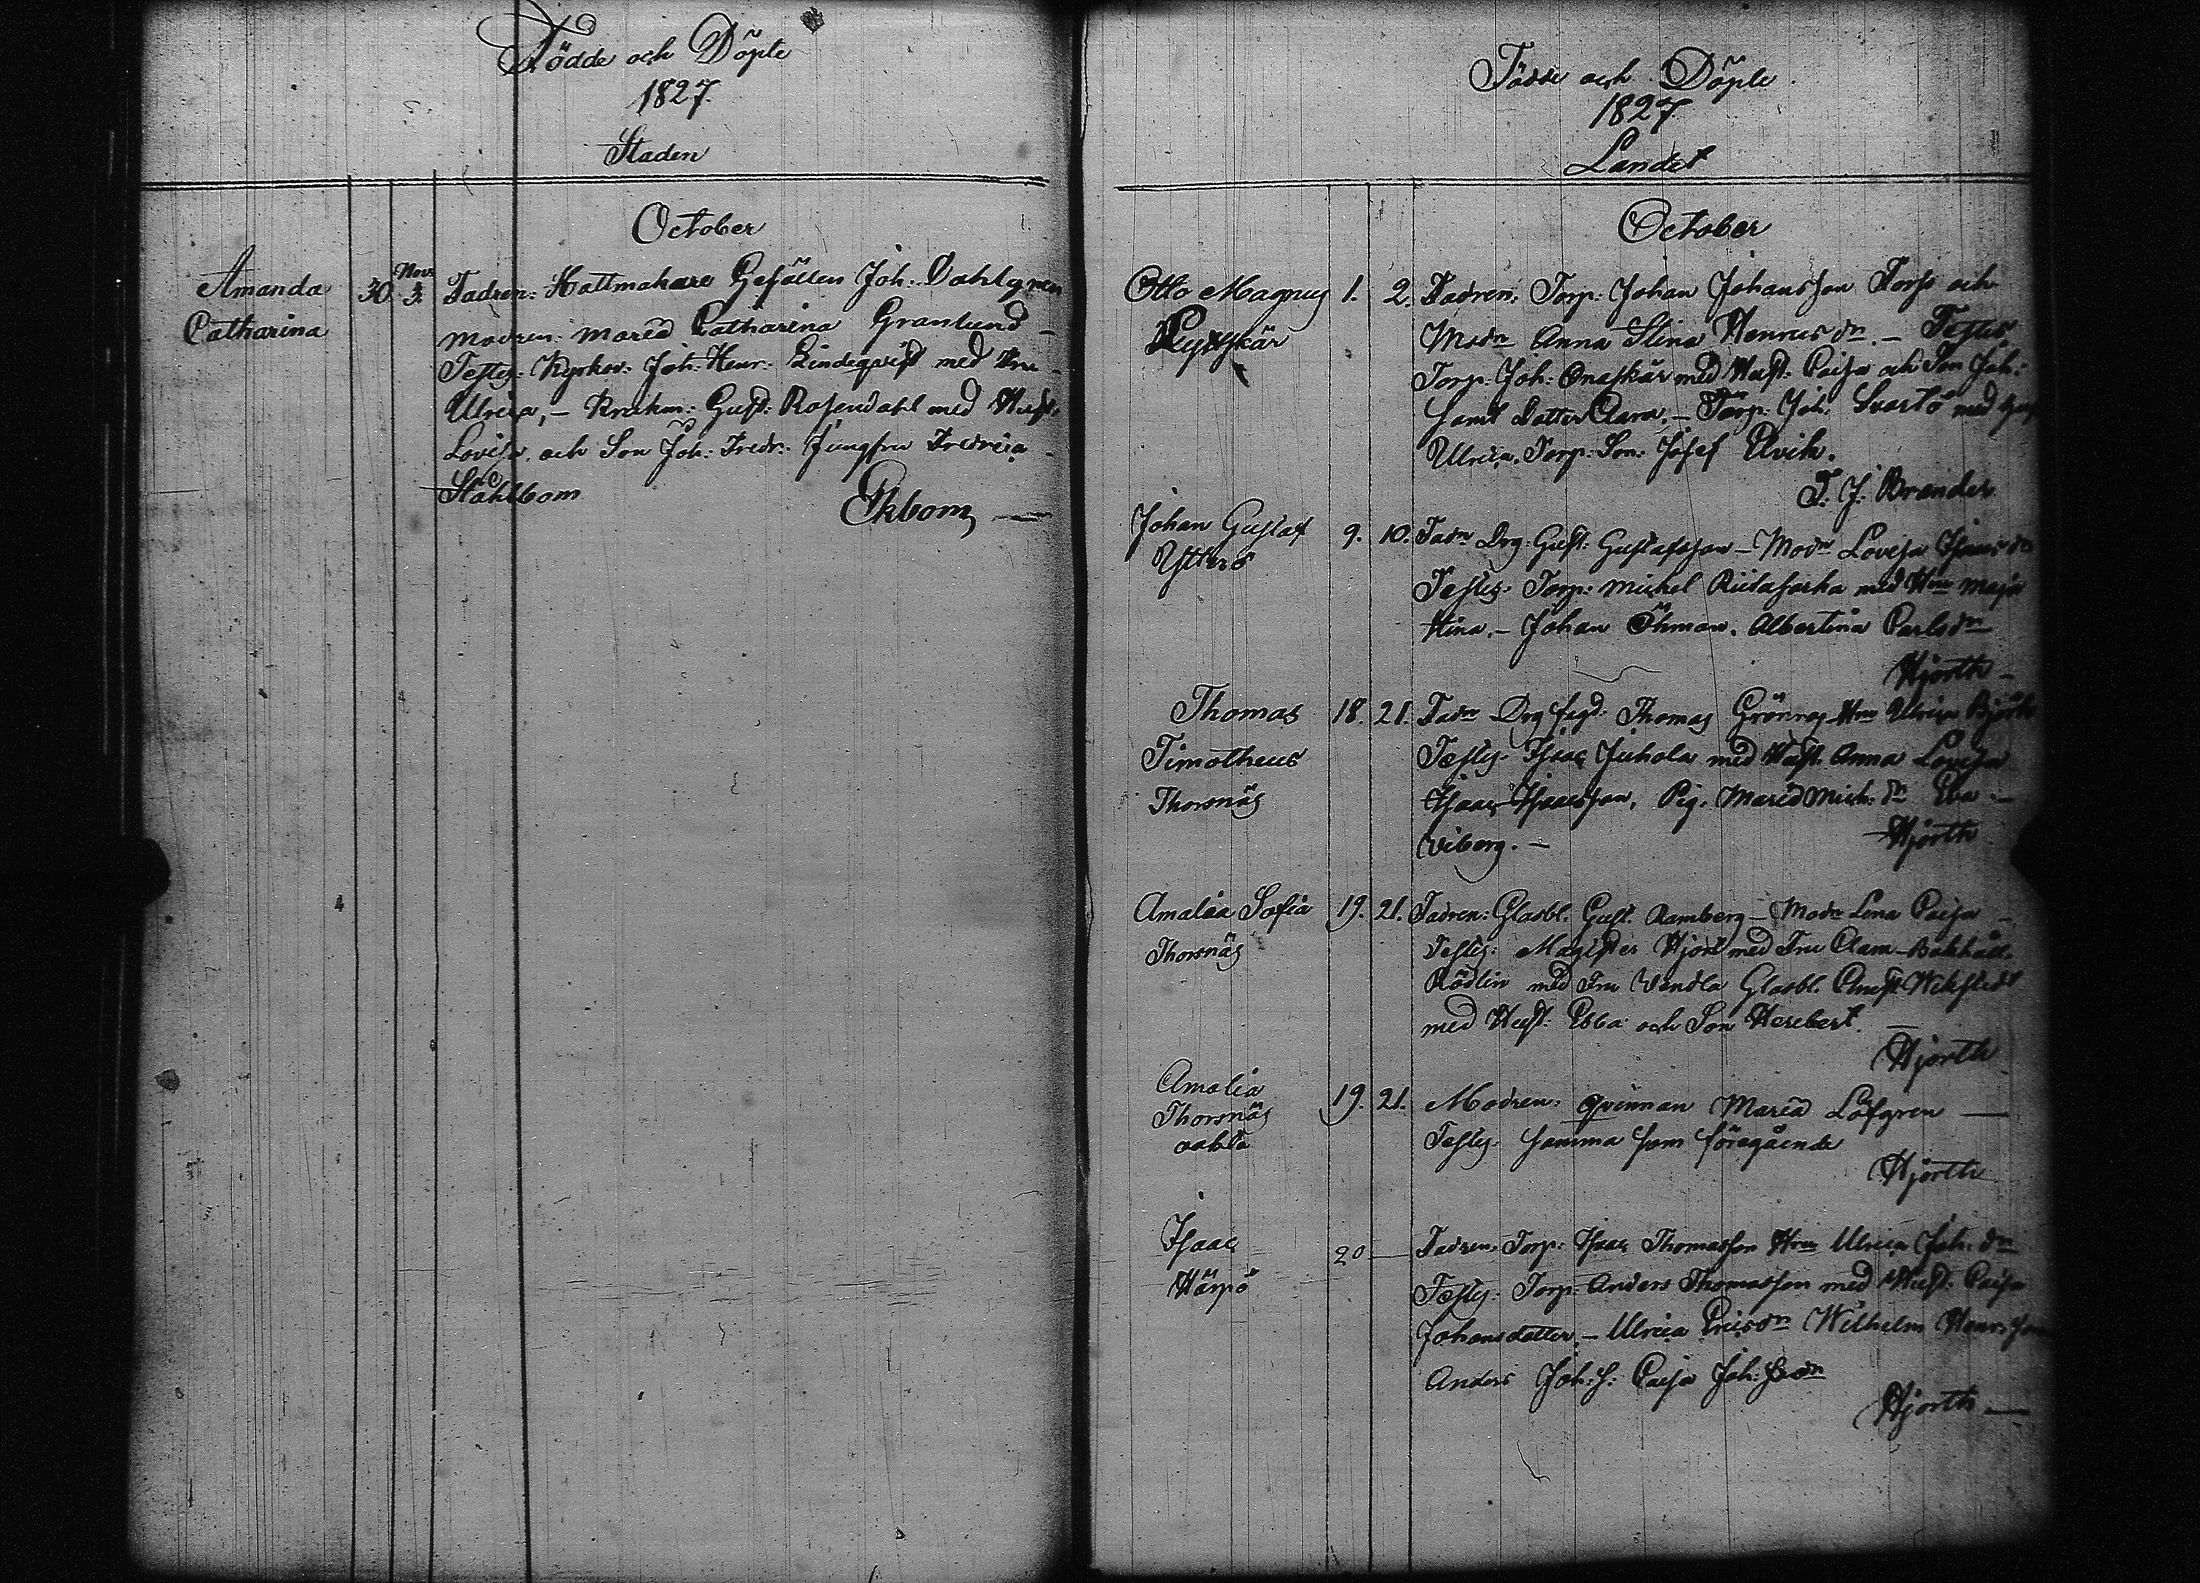 Födde och Döpte
1827.
Staden
October
Amanda
Catharina
30. Nov: 3.
Fadren: Hattmakare Gesällen Joh: Dahlgren
Modren: Maria Catharina Granlund –
Testes: Kyrkov: Joh: Henr: Lindeqvist med Fru
Ulrica, – Kyrkov: Gust: Rosendahl med Hust:
Lovisa och Son Joh: Fredr: Jungfru Fredrica
Ståhlbom
Ekbom, —
Födde och Döpte
1827.
Landet
October
Otto Magnus
1. 2. Fadren: Torp: Johan Johansson Torsö och
Modn Anna Stina Henricsdn. – Testes
Torp: Joh: Enaskär med Hust: Caisa och Son Joh:
samt Dotter Clara. – Torp: Joh: Svartö med Hust
Ulrica. Torp: Son: Josef Elvik.
T. J. Brander
Johan Gustaf
Ytterö
9. 10. Fadn Drg: Gust: Gustafsson – Modn Lovisa
Testes: Torp: Michel med Hru Maja
Stina. – Johan Öhman. Albertina Carlsdn
Hjorth –
Thomas
Timotheus
Thorsnäs
18. 21. Fadn Drg Thomas Grönroos Hru Ulrica Björk
Testes: Isaac Juhola med Hust: Anna Lovisa
Isaac Isaacsson, Pig. Maria Mich: dn Eva –
Viberg. –
Hjorth
Amalia Sofia
Thorsnäs
19. 21. Fadren: Glasbl. Gust. Ramberg – Modn Lena Caisa –
Testes: Magister Hjort med Fru Clara – Bokhåll.
Rödlin med Fru Vendla Glasbl. Wikstedt
med Hust: Ebba och Son Herebert.
Hjorth
Amalia
Thorsnäs
oäkta
19. 21. Modren: qvinnan Maria Löfgren —
Testes: samma som föregående
Hjorth
Isaac
Härpö
20 — Fadren: Torp: Isaac Thomasson Hru Ulrica Joh: dn
Testes: Torp: Anders Thomasson med Hust: Caisa
Johansdotter, – Ulrica Ericsdn Wilhelm Henr: son
Anders Joh: s: Caisa Joh: dn
Hjorth —